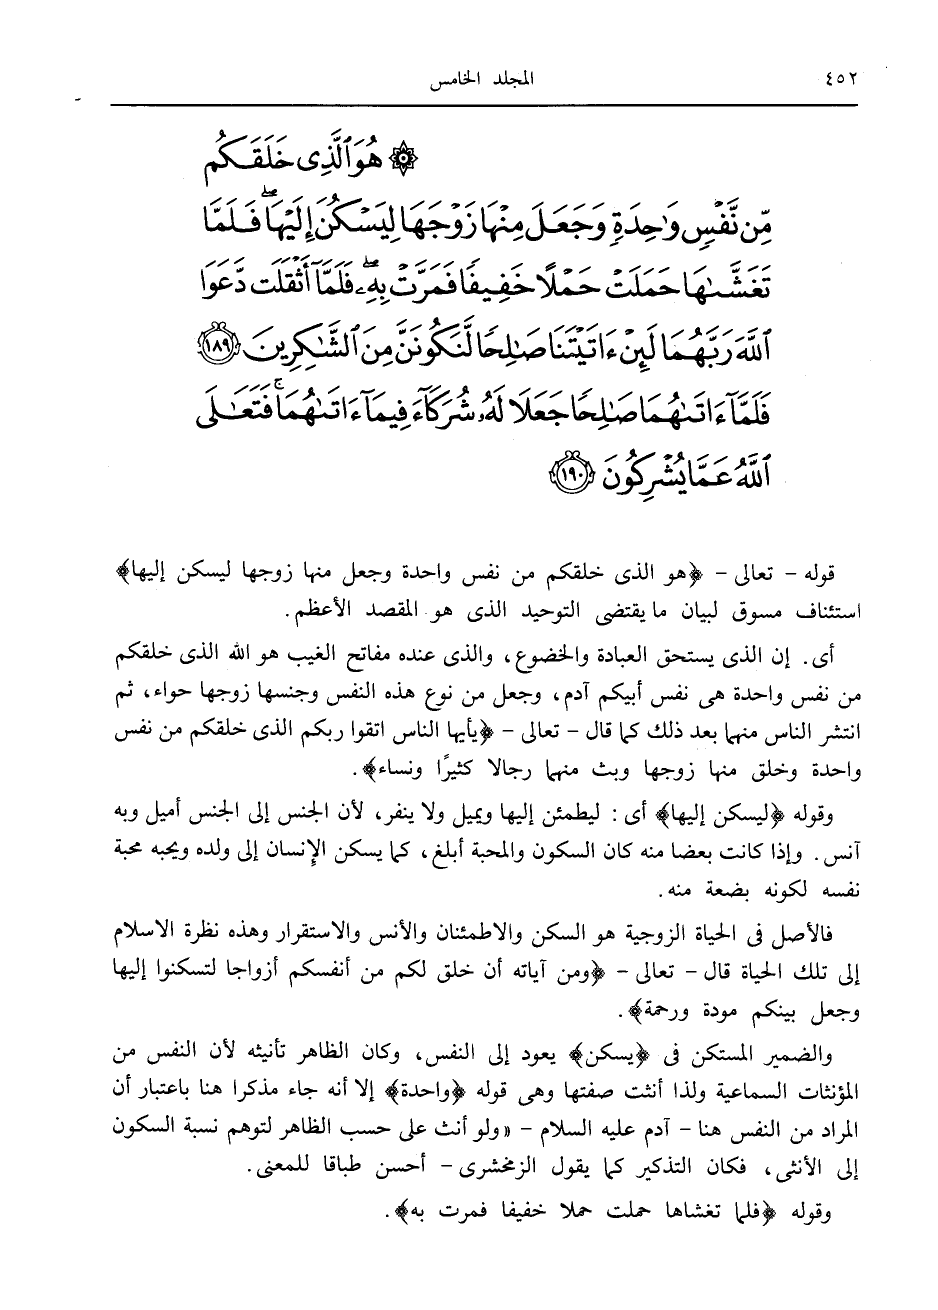 ٤٥٢ المجلد الخامس
۞ هُوَ ٱلَّذِى خَلَقَكُم
مِّن نَّفْسٍ وَٰحِدَةٍ وَجَعَلَ مِنْهَا زَوْجَهَا لِيَسْكُنَ إِلَيْهَا ۖ فَلَمَّا
تَغَشَّىٰهَا حَمَلَتْ حَمْلًا خَفِيفًا فَمَرَّتْ بِهِۦ ۖ فَلَمَّآ أَثْقَلَت دَّعَوَا
ٱللَّهَ رَبَّهُمَا لَئِنْ ءَاتَيْتَنَا صَٰلِحًا لَّنَكُونَنَّ مِنَ ٱلشَّٰكِرِينَ ١٨٩
فَلَمَّآ ءَاتَىٰهُمَا صَٰلِحًا جَعَلَا لَهُۥ شُرَكَآءَ فِيمَآ ءَاتَىٰهُمَا ۚ فَتَعَٰلَى
ٱللَّهُ عَمَّا يُشْرِكُونَ ١٩٠
قوله - تعالى - ﴿هو الذى خلقكم من نفس واحدة وجعل منها زوجها ليسكن إليها﴾
استئناف مسوق لبيان ما يقتضى التوحيد الذى هو المقصد الأعظم.
أى. إن الذى يستحق العبادة والخضوع، والذى عنده مفاتح الغيب هو الله الذى خلقكم
من نفس واحدة هى نفس أبيكم آدم، وجعل من نوع هذه النفس وجنسها زوجها حواء، ثم
انتشر الناس منهما بعد ذلك كما قال - تعالى - ﴿يأيها الناس اتقوا ربكم الذى خلقكم من نفس
واحدة وخلق منها زوجها وبث منهما رجالا كثيرًا ونساء﴾.
وقوله ﴿ليسكن إليها﴾ أى : ليطمئن إليها ويميل ولا ينفر، لأن الجنس إلى الجنس أميل وبه
آنس. وإذا كانت بعضا منه كان السكون والمحبة أبلغ، كما يسكن الإنسان إلى ولده ويحبه محبة
نفسه لكونه بضعة منه.
فالأصل فى الحياة الزوجية هو السكن والاطمئنان والأنس والاستقرار وهذه نظرة الاسلام
إلى تلك الحياة قال - تعالى - ﴿ومن آياته أن خلق لكم من أنفسكم أزواجا لتسكنوا إليها
وجعل بينكم مودة ورحمة﴾.
والضمير المستكن فى ﴿يسكن﴾ يعود إلى النفس، وكان الظاهر تأنيثه لأن النفس من
المؤنثات السماعية ولذا أنثت صفتها وهى قوله ﴿واحدة﴾ إلا أنه جاء مذكرا هنا باعتبار أن
المراد من النفس هنا - آدم عليه السلام - «ولو أنث على حسب الظاهر لتوهم نسبة السكون
إلى الأنثى، فكان التذكير كما يقول الزمخشرى - أحسن طباقا للمعنى.
وقوله ﴿فلما تغشاها حملت حملا خفيفا فمرت به﴾.